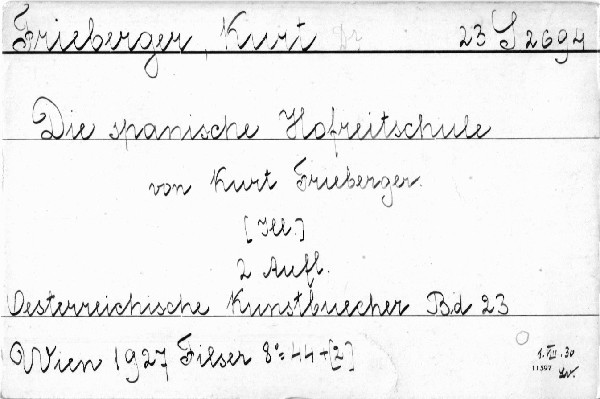 Frieberger, Kurt Dr 23 S 2694
Die spanische Hofreitschule
von Kurt Frieberger.
[Ill.]
2 Aufl.
Oesterreichische Kunstbuecher Bd 23
Wien 1927 Filser 8°= 44+[2]
1. VII. 30
11367